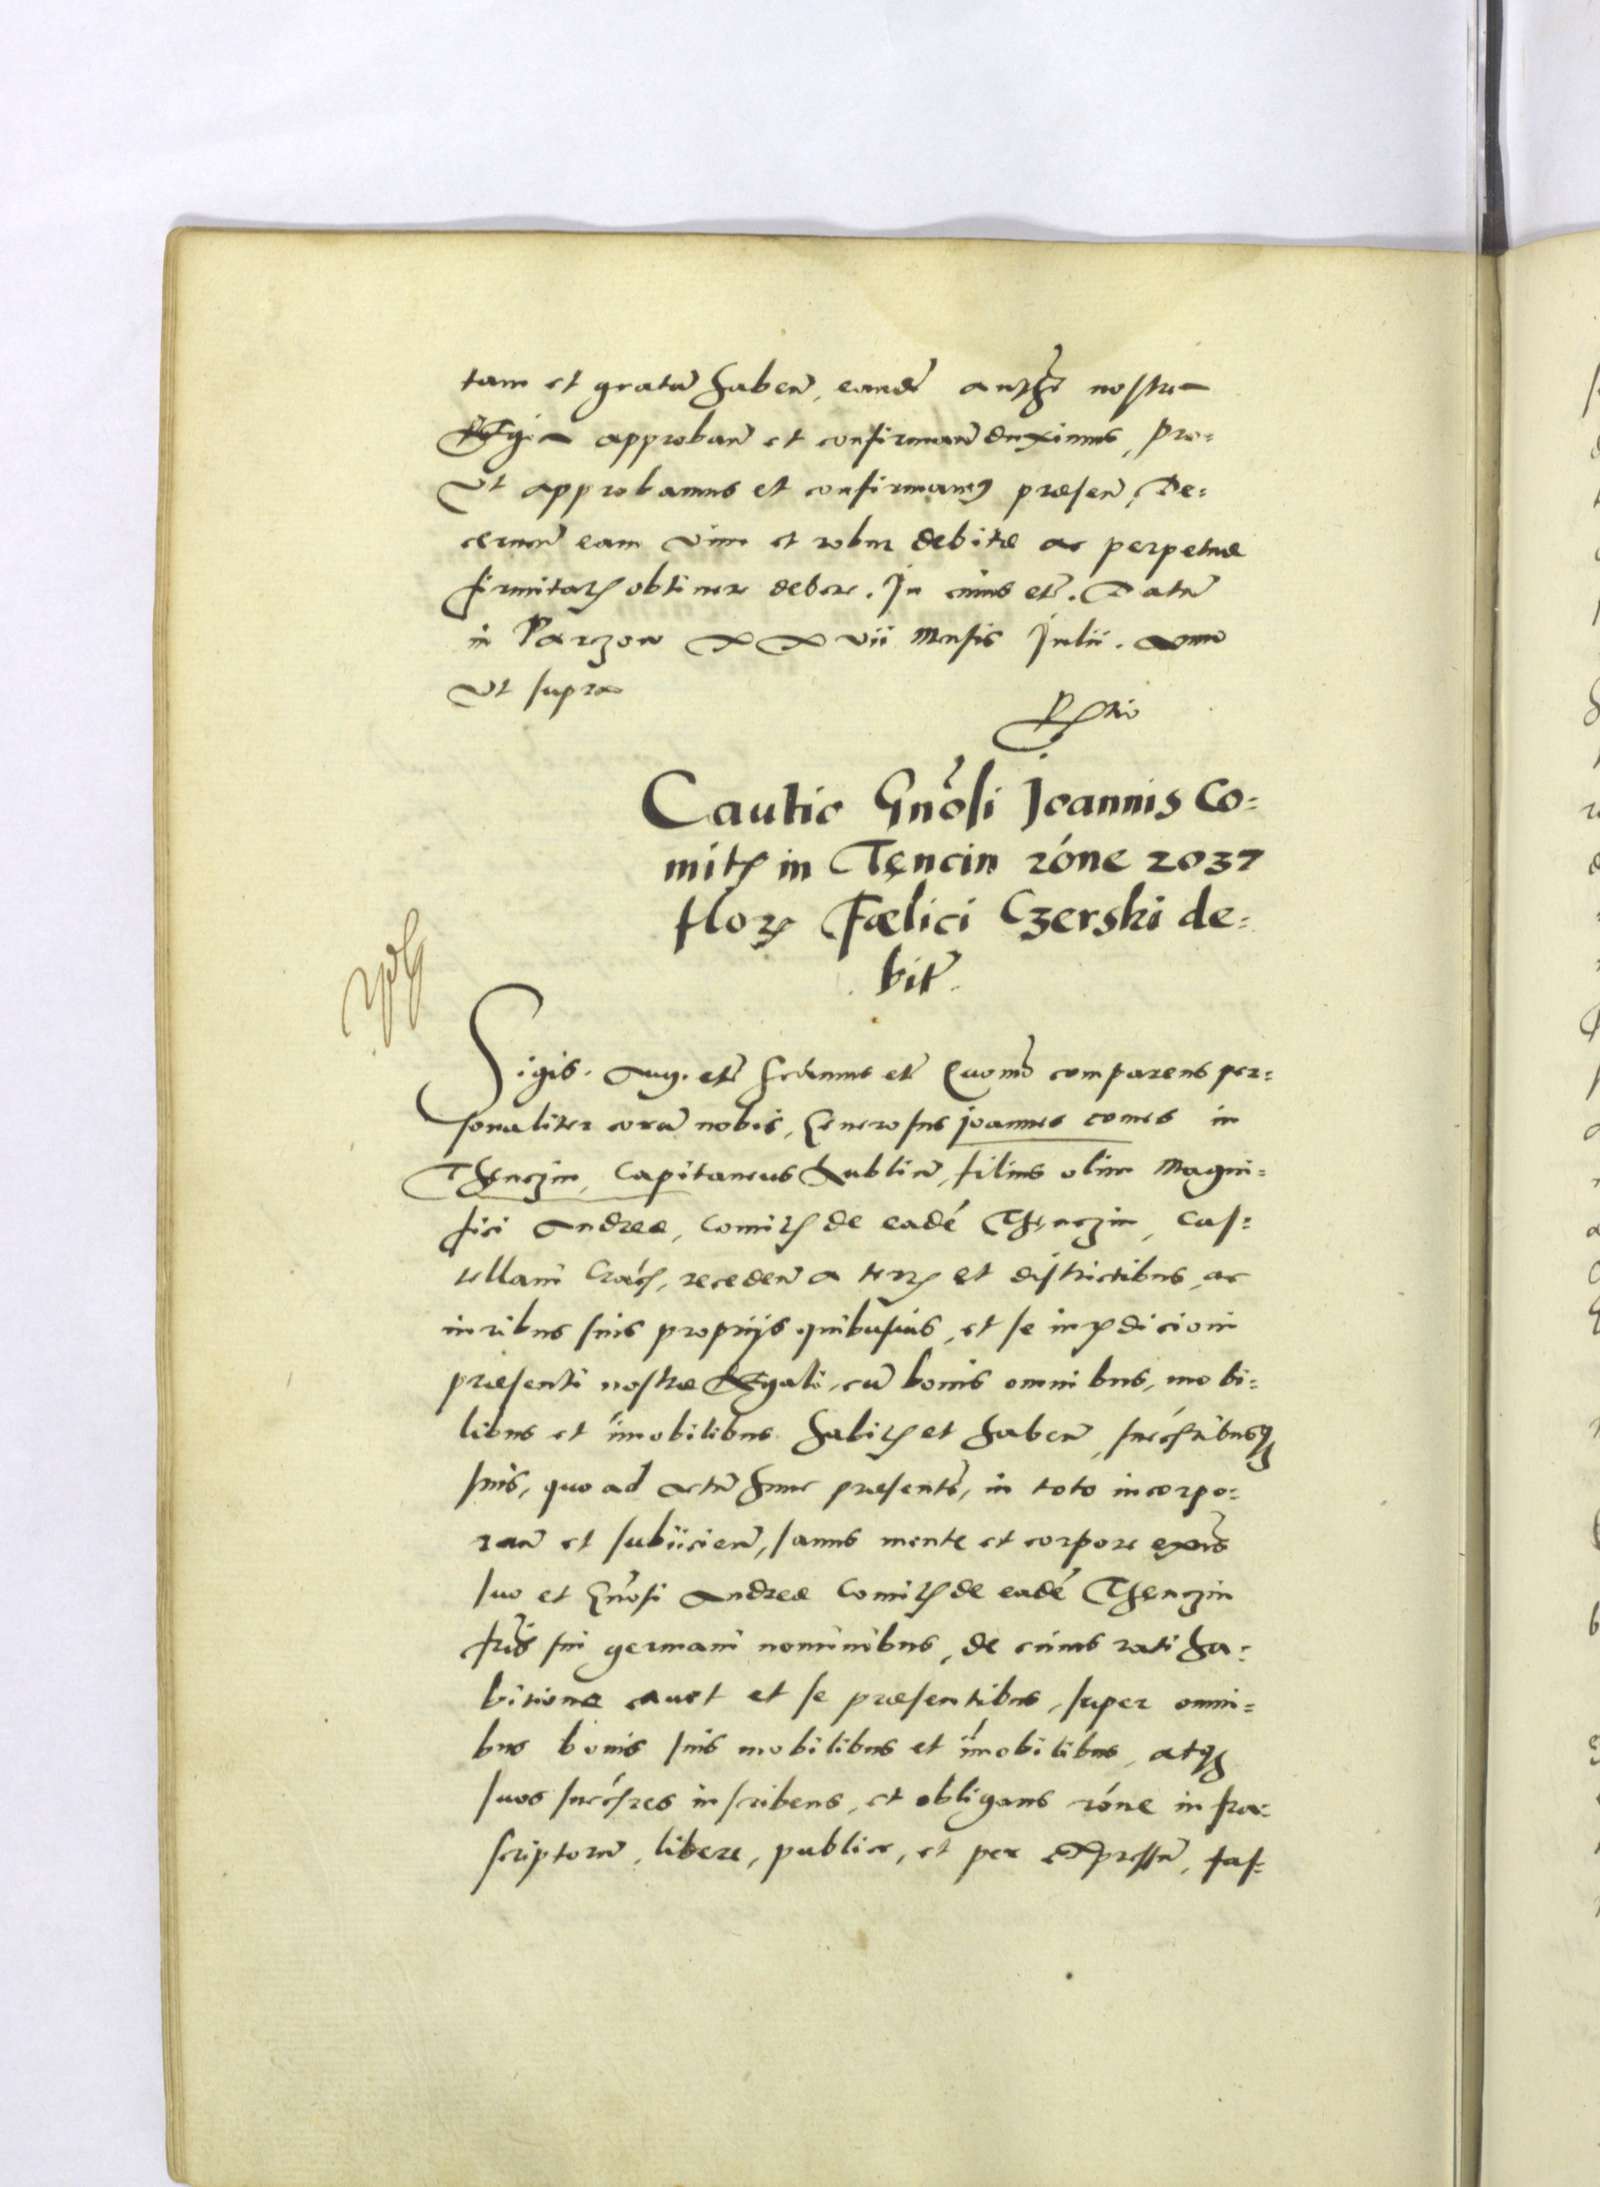 tam et gratam haben̄, eandē auth̄te nostra
Regia approban̄ et confirman̄ duximus, pro=
Ut approbamus et confirmamus praesen̄, De=
cernen̄ eam vim et robur debitae ac perpetuae
firmitatis obtinere debere. In cuius etc̄. Datū
in Parczow XXvii mensis Julii. Anno
Ut supra
Cautio Gn̄osi Joannis Co=
mitis in Tęncin rōne 2037
flor Fælici Czerski de=
bit̄.
Sigis. Aug. etc̄ scimus etc̄ Quomō comparens per=
sonaliter corā nobis, Generosus Joannes comes in
Thęnczin, Capitaneus Lublin̄, filius olim Magni=
fici Andreæ, Comitis de eadē Thęnczin, Cas=
tellani Crac̄, receden̄ a terris et districtibus, ac
iuribus suis proprijs quibusvis, et se iurisdicioni
præsenti nostræ Regali, cū bonis omnibus, mobi=
libus et īmobilibus habitis et haben̄, succ̄ribusq
suis, quoad actū hunc præsentē, in toto incorpo=
ran̄ et subiicien̄, sanus mente et corpore exn̄s
suo et Gn̄osi Andreæ Comitis de eadē Thęnczin
fr̄is sui germani nominibus, de cuius rati ha=
bitione cavet et se præsentibus, super omni=
bus bonis suis mobilibus et īmobilibus, atq
suos succ̄res inscribens, et obligans rōne infra=
scriptorū, libere, publice, et per expressū, fas=